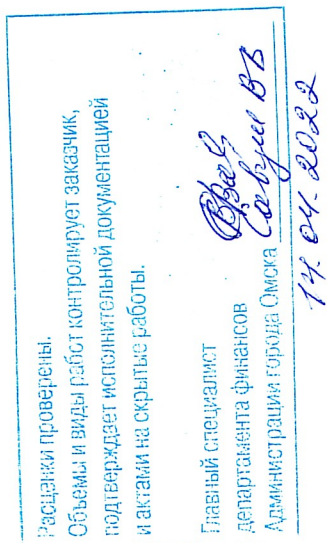 Расценки проверены.
Объемы и виды работ контролирует заказчик,
подтверждает исполнительной документацией
и актами на скрытые работы.
Главный специалист
департамента финансов
Администрации города Омска
14.04.2022